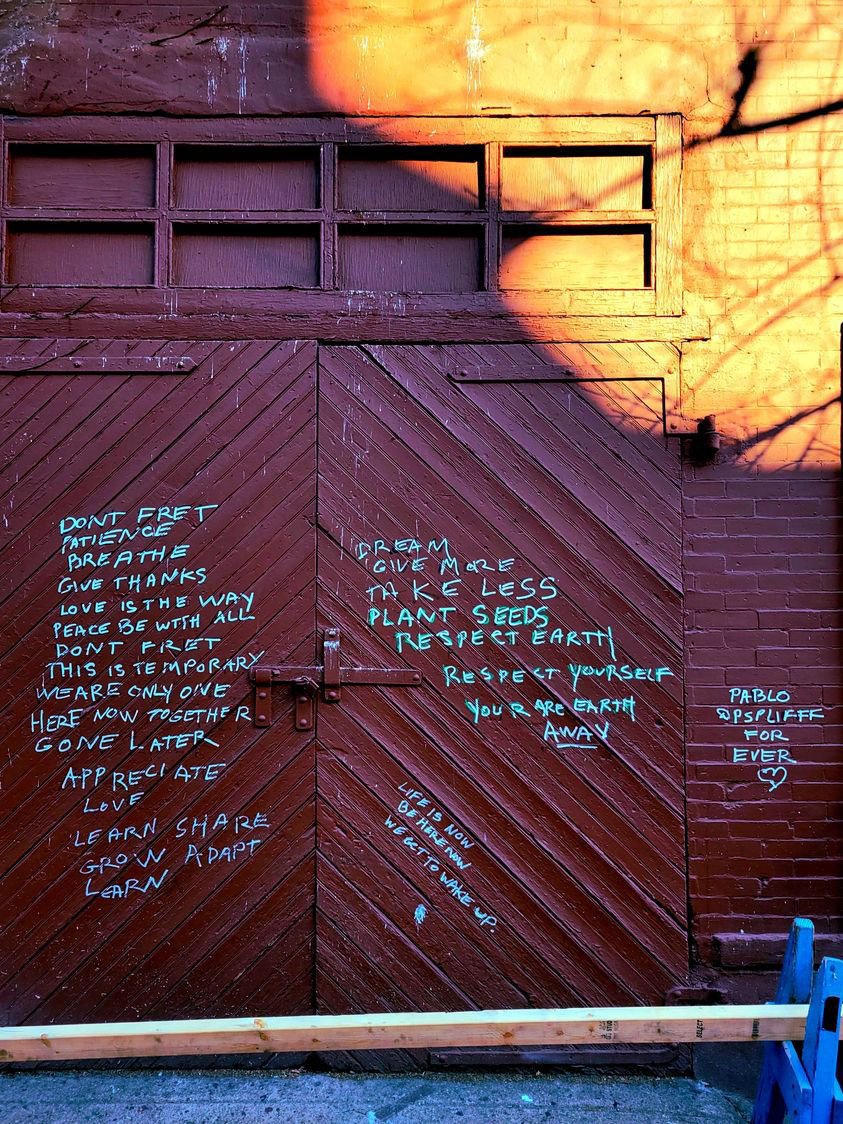 DONT FRET
PATIENCE
BREATHE
GIVE THANKS
LOVE IS THE WAY
PEACE BE WITH ALL
DONT FRET
THIS IS TEMPORARY
WE ARE ONLY ONE
HERE NOW TOGETHER
GONE LATER
APPRECIATE
LOVE
LEARN SHARE
GROW ADAPT
LEARN
DREAM
GIVE MORE
TAKE LESS
PLANT SEEDS
RESPECT EARTH
RESPECT YOURSELF
YOU R ARE EARTH
AWAY
LIFE IS NOW
BE HERE NOW
WE GOT TO WAKE UP.
PABLO
@PSPLIFFF
FOR
EVER